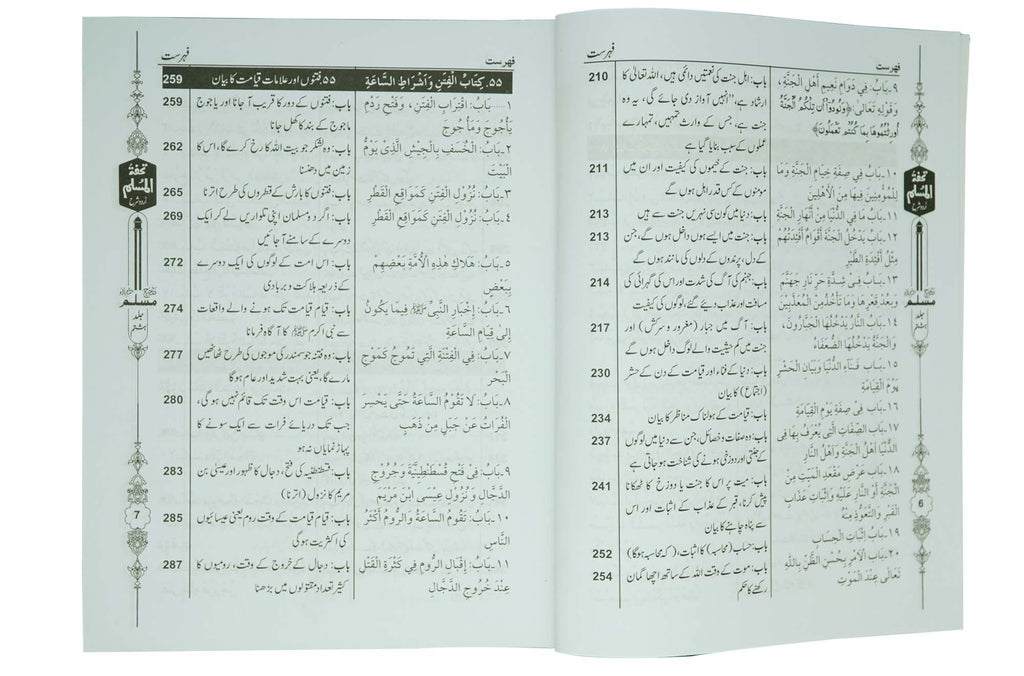 فہرست
فہرست
۹۔بَابُ: فِي دَوَامِ نَعِيمِ أَهْلِ الْجَنَّةِ،
وَقَوْلِهِ تَعَالَى: ﴿وَنُودُوْٓا اَنْ تِلْكُمُ الْجَنَّةُ
اُورِثْتُمُوهَا بِمَا كُنْتُمْ تَعْمَلُونَ﴾
باب: اہل جنت کی نعمتیں دائمی ہیں، اللہ تعالیٰ کا
ارشاد ہے، ’’انہیں آواز دی جائے گی، یہ وہ
جنت ہے، جس کے وارث تمہیں، تمہارے
عملوں کے سبب بنایا گیا ہے
210
۱۰۔بَابُ فِي صِفَةِ خِيَامِ الْجَنَّةِ وَمَا
لِلْمُؤْمِنِينَ فِيهَا مِنَ الْأَهْلِينَ
باب: جنت کے خیموں کی کیفیت اور ان میں
مومنوں کے کس قدر اہل ہوں گے
211
۱۱۔بَابُ مَا فِي الدُّنْيَا مِنْ أَنْهَارِ الْجَنَّةِ
باب: دنیا میں کون سی نہریں جنت سے ہیں
213
۱۲۔بَابُ يَدْخُلُ الْجَنَّةَ أَقْوَامٌ أَفْئِدَتُهُمْ
مِثْلُ أَفْئِدَةِ الطَّيْرِ
باب: جنت میں ایسے ہوں داخل ہوں گے، جن
کے دل، پرندوں کے دلوں کی مانند ہوں گے
213
۱۳۔بَابٌ فِي شِدَّةِ حَرِّ نَارِ جَهَنَّمَ
وَبُعْدِ قَعْرِهَا وَمَا تَأْخُذُ مِنَ الْمُعَذَّبِينَ
باب: جہنم کی آگ کی شدت اور اس کی گہرائی کی
مسافت اور عذاب دیئے گئے، لوگوں کی کیفیت
214
۱۴۔بَابُ النَّارُ يَدْخُلُهَا الْجَبَّارُونَ،
وَالْجَنَّةُ يَدْخُلُهَا الضُّعَفَاءُ
باب: آگ میں جبار (مغرور و سرکش) اور
جنت میں کم حیثیت والے لوگ داخل ہوں گے
217
۱۵۔بَابُ فَنَاءِ الدُّنْيَا وَبَيَانِ الْحَشْرِ
يَوْمَ الْقِيَامَةِ
باب: دنیا کے فناء اور قیامت کے دن کے حشر
(اجتماع) کا بیان
230
۱۶۔بَابُ فِي صِفَةِ يَوْمِ الْقِيَامَةِ
باب: قیامت کے ہولناک مناظر کا بیان
234
۱۷۔بَابُ الصِّفَاتِ الَّتِي يُعْرَفُ بِهَا فِي
الدُّنْيَا أَهْلُ الْجَنَّةِ وَأَهْلُ النَّارِ
باب: وہ صفات و خصائل، جن سے دنیا میں لوگوں
کے جنتی اور دوزخی ہونے کی شناخت ہو جاتی ہے
237
۱۸۔بَابُ عَرْضِ مَقْعَدِ الْمَيِّتِ مِنَ
الْجَنَّةِ أَوِ النَّارِ عَلَيْهِ وَإِثْبَاتِ عَذَابِ
الْقَبْرِ وَالتَّعَوُّذِ مِنْهُ
باب: میت پر اس کا جنت یا دوزخ کا ٹھکانا
پیش کرنا، قبر کے عذاب کے اثبات اور اس
سے پناہ چاہنے کا بیان
241
۱۹۔بَابُ إِثْبَاتِ الْحِسَابِ
باب: حساب (محاسبہ) کا اثبات، (کہ محاسبہ ہوگا)
252
۲۰۔بَابُ الْأَمْرِ بِحُسْنِ الظَّنِّ بِاللهِ
تَعَالَى عِنْدَ الْمَوْتِ
باب: موت کے وقت اللہ کے ساتھ اچھا گمان
رکھنے کا حکم
254
تحفۃ
المسلم
اردو شرح
مسلم
جلد
ہشتم
6
فہرست
فہرست
۵۵۔ كِتَابُ الْفِتَنِ وَأَشْرَاطِ السَّاعَةِ
۵۵ فتنوں اور علامات قیامت کا بیان
259
۱ـــ بَابُ: اقْتِرَابِ الْفِتَنِ، وَفَتْحِ رَدْمِ
يَأْجُوجَ وَمَأْجُوجَ
باب: فتنوں کے دور کا قریب آ جانا اور یاجوج
ماجوج کے بند کا کھل جانا
259
۲۔بَابُ: الْخَسْفِ بِالْجَيْشِ الَّذِي يَؤُمُّ
الْبَيْتَ
باب: وہ لشکر جو بیت اللہ کا رخ کرے گا، اس کا
زمین میں دھنسنا
262
۳۔بَابُ: نُزُولِ الْفِتَنِ كَمَوَاقِعِ الْقَطْرِ
باب: فتنوں کا بارش کے قطروں کی طرح اترنا
265
۴۔بَابُ: نُزُولِ الْفِتَنِ كَمَوَاقِعِ الْقَطْرِ
باب: اگر دو مسلمان اپنی تلواریں لے کر ایک
دوسرے کے سامنے آ جائیں
269
۵۔بَابُ: هَلَاكِ هَذِهِ الْأُمَّةِ بَعْضِهِمْ
بِبَعْضٍ
باب: اس امت کے لوگوں کی ایک دوسرے
کے ذریعہ ہلاکت و بربادی
272
۶۔بَابُ: إِخْبَارِ النَّبِيِّ ﷺ فِيمَا يَكُونُ
إِلَى قِيَامِ السَّاعَةِ
باب: قیامت تک ہونے والے واقعات
سے نبی اکرم ﷺ کا آگاہ فرمانا
274
۷۔بَابُ: فِي الْفِتْنَةِ الَّتِي تَمُوجُ كَمَوْجِ
الْبَحْرِ
باب: وہ فتنہ جو سمندر کی موجوں کی طرح ٹھاٹھیں
مارے گا، یعنی بہت شدید اور عام ہوگا
277
۸۔بَابُ: لَا تَقُومُ السَّاعَةُ حَتَّى يَحْسِرَ
الْفُرَاتُ عَنْ جَبَلٍ مِنْ ذَهَبٍ
باب: قیامت اس وقت تک قائم نہیں ہوگی،
جب تک دریائے فرات سے ایک سونے کا
پہاڑ نمایاں نہ ہو
280
۹۔بَابُ: فِي فَتْحِ قُسْطَنْطِينِيَّةَ وَخُرُوجِ
الدَّجَّالِ وَنُزُولِ عِيسَى ابْنِ مَرْيَمَ
باب: قسطنطنیہ کی فتح، دجال کا ظہور اور عیسیٰ بن
مریم کا نزول (اترنا)
283
۱۰۔بَابُ: تَقُومُ السَّاعَةُ وَالرُّومُ أَكْثَرُ
النَّاسِ
باب: قیام قیامت کے وقت روم یعنی عیسائیوں
کی اکثریت ہوگی
285
۱۱۔بَابُ: إِقْبَالِ الرُّومِ فِي كَثْرَةِ الْقَتْلِ
عِنْدَ خُرُوجِ الدَّجَّالِ
باب: دجال کے خروج کے وقت، رومیوں کا
کثیر تعداد مقتولوں میں بڑھنا
287
تحفۃ
المسلم
اردو شرح
مسلم
جلد
ہشتم
7